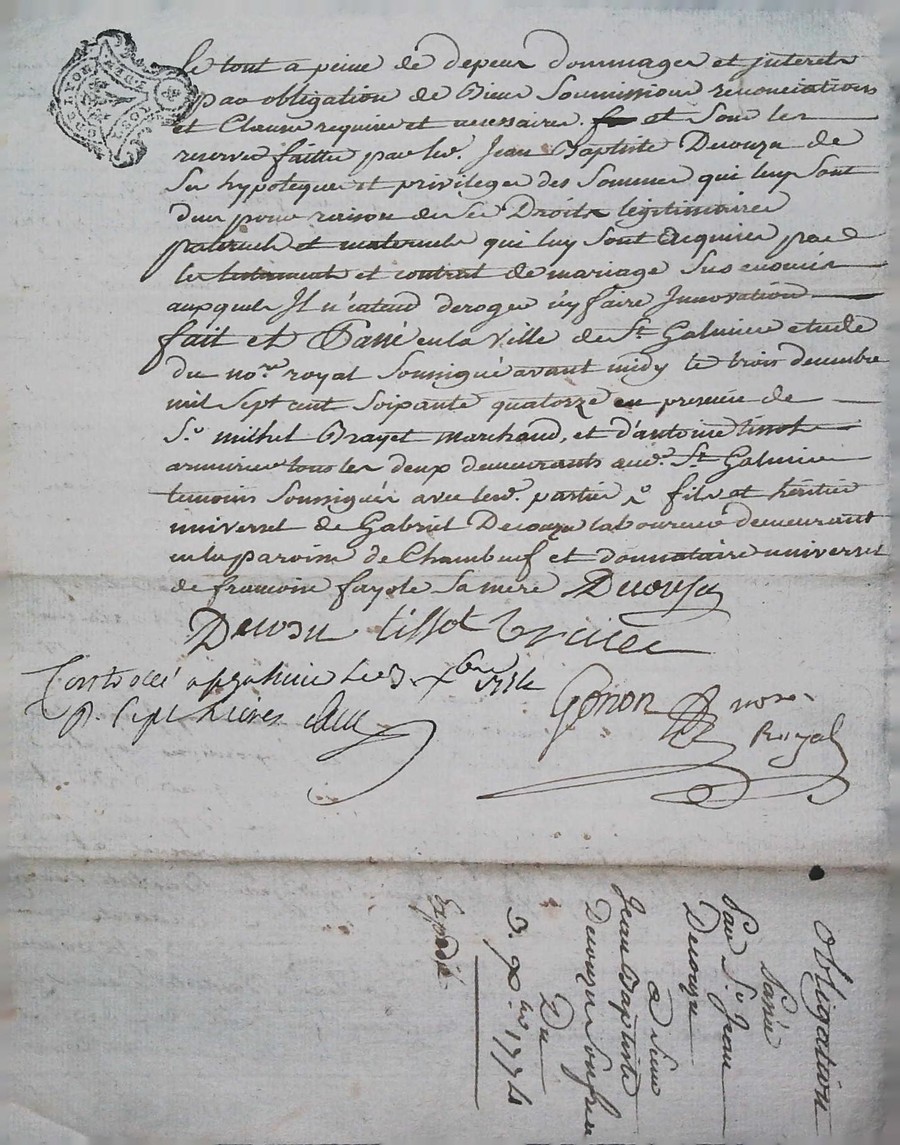 le tout a peine de depens dommages et interets
par obligation de Biens Soumissions renonciations
et Clauses requises et necessaires. et Sous les
reserves faittes par led. Jean Baptiste Decouzu de
Ses hypoteques et privileges des Sommes qui luy Sont
dues pour raison de Ses Droits legitimaires
paternels et maternels qui luy Sont acquises par
les testaments et contrat de mariage Sus enoncés
auxquels Il n'entend deroger ny faire Innovation
fait et Passé en la Ville de St. Galmier etude
du nore. royal Soussigné avant midy le trois decembre
mil Sept cent Soixante quatorze en presence de
Sr. michel Brayet marchand, et d'antoine tissot
armurier tous les deux demeurants aud. St. Galmier
temoins Soussignés avec lesd. parties fils et héritier
universel de Gabriel Decouzu laboureur demeurant
en la paroisse de Chambœuf et donnataire universel
de francoise fayole Sa mere Decouzu
Decouzu tissot
Controllé a St galmier le 3. xbre 1774
R. Sept Livres
Gonon nore.
Royal
Obligation
Passée
Par Sr. Jean
Decouzu
a Sieur
Jean Baptiste
Decouzu Son frere
Du
3. xbre 1774
Expedié